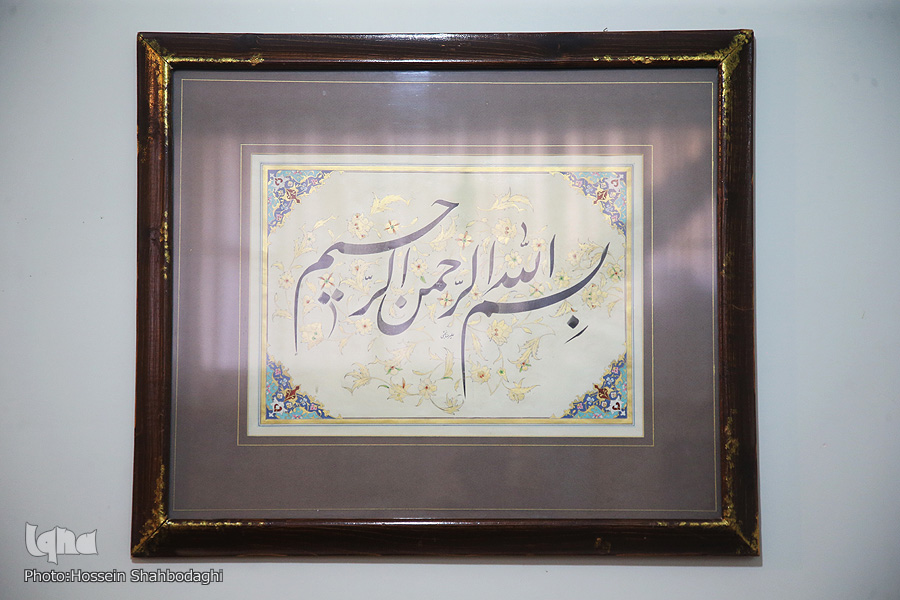 بِسم الله الرّحمن الرّحیم
Iqna
Photo:Hossein Shahbodaghi